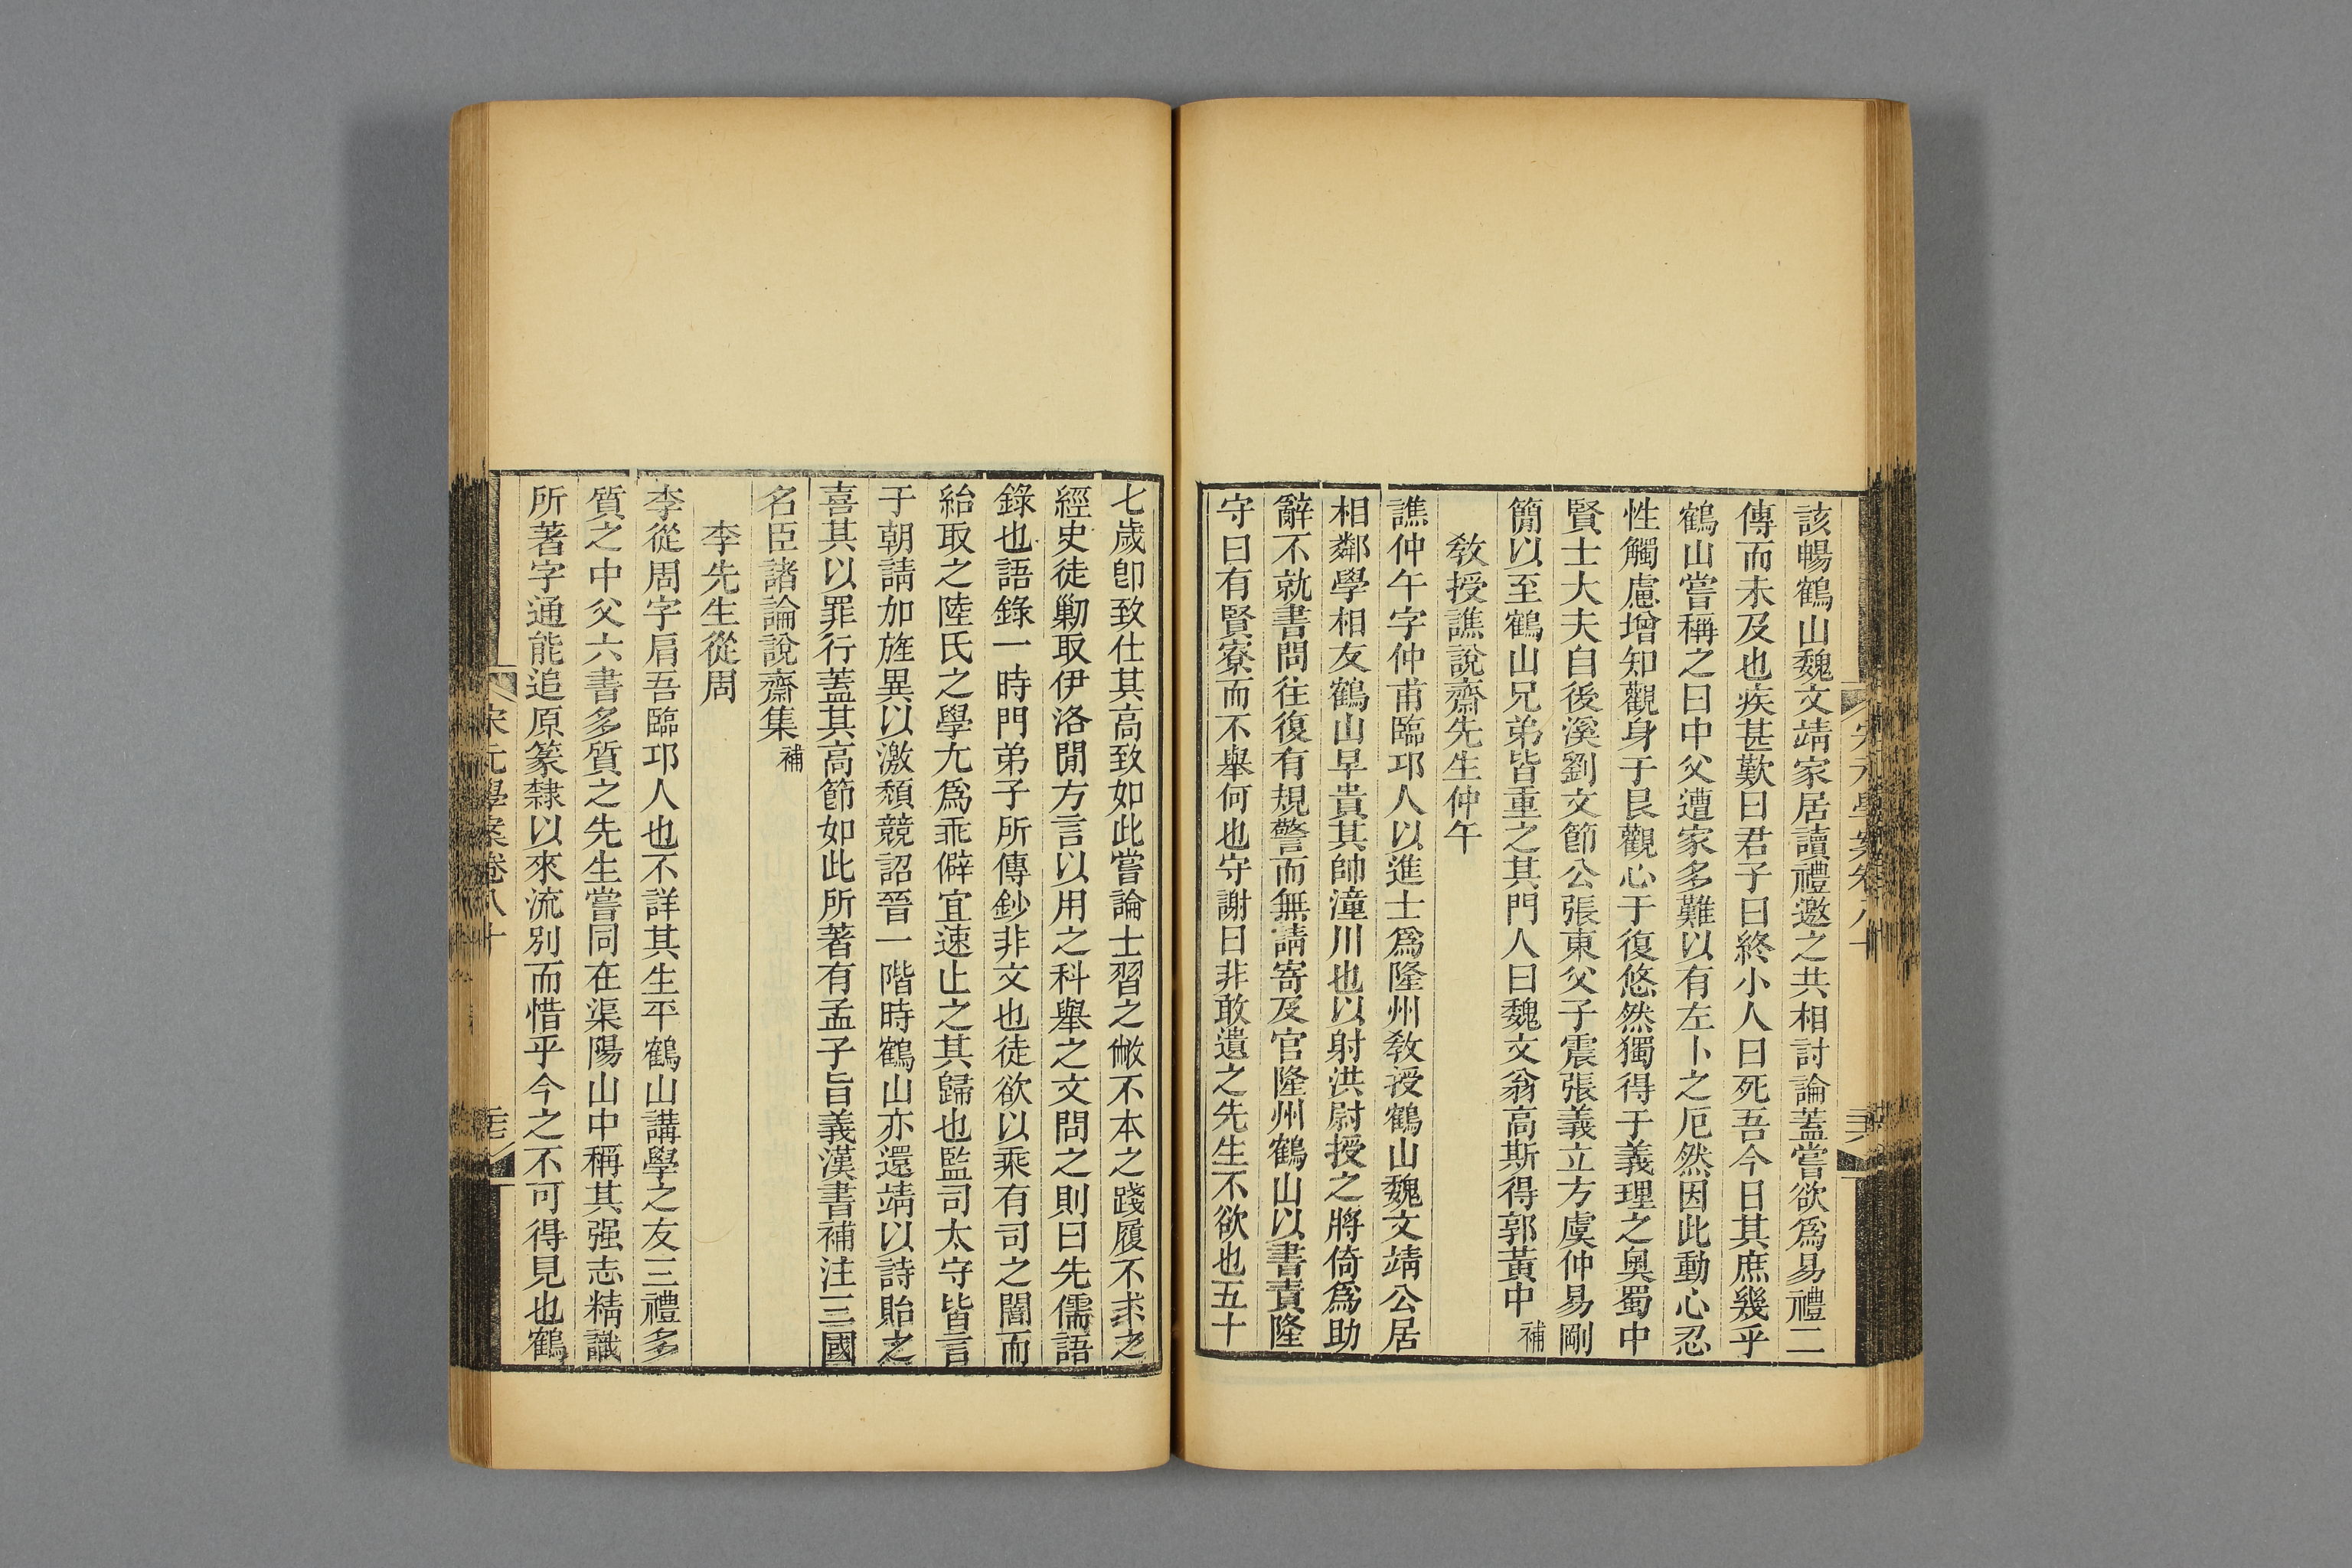 該暢鶴山魏文靖家居讀禮邀之共相討論蓋嘗欲爲易禮二
傳而未及也疾甚歎曰君子曰終小人曰死吾今日其庶幾乎
鶴山嘗稱之曰中父遭家多難以有左卜之厄然因此動心忍
性觸慮增知觀身于艮觀心于復悠然獨得于義理之奥蜀中
賢士大夫自後溪劉文節公張東父子震張義立方虞仲易剛
簡以至鶴山兄弟皆重之其門人曰魏文翁高斯得郭黃中補
教授譙說齋先生仲午
譙仲午字仲甫臨邛人以進士爲隆州教授鶴山魏文靖公居
相鄰學相友鶴山早貴其帥潼川也以射洪尉授之將倚爲助
辭不就書問往復有規警而無請寄及官隆州鶴山以書責隆
守曰有賢寮而不舉何也守謝曰非敢遺之先生不欲也五十
七歲卽致仕其高致如此嘗論士習之敝不本之踐履不求之
經史徒勦取伊洛閒方言以用之科舉之文問之則曰先儒語
錄也語錄一時門弟子所傳鈔非文也徒欲以乘有司之闇而
紿取之陸氏之學尤爲乖僻宜速止之其歸也監司太守皆言
于朝請加旌異以激頹競詔晉一階時鶴山亦還靖以詩貽之
喜其以罪行蓋其高節如此所著有孟子旨義漢書補注三國
名臣諸論說齋集補
李先生從周
李從周字肩吾臨邛人也不詳其生平鶴山講學之友三禮多
質之中父六書多質之先生嘗同在渠陽山中稱其强志精識
所著字通能追原篆隸以來流別而惜乎今之不可得見也鶴
宋元學案卷八十